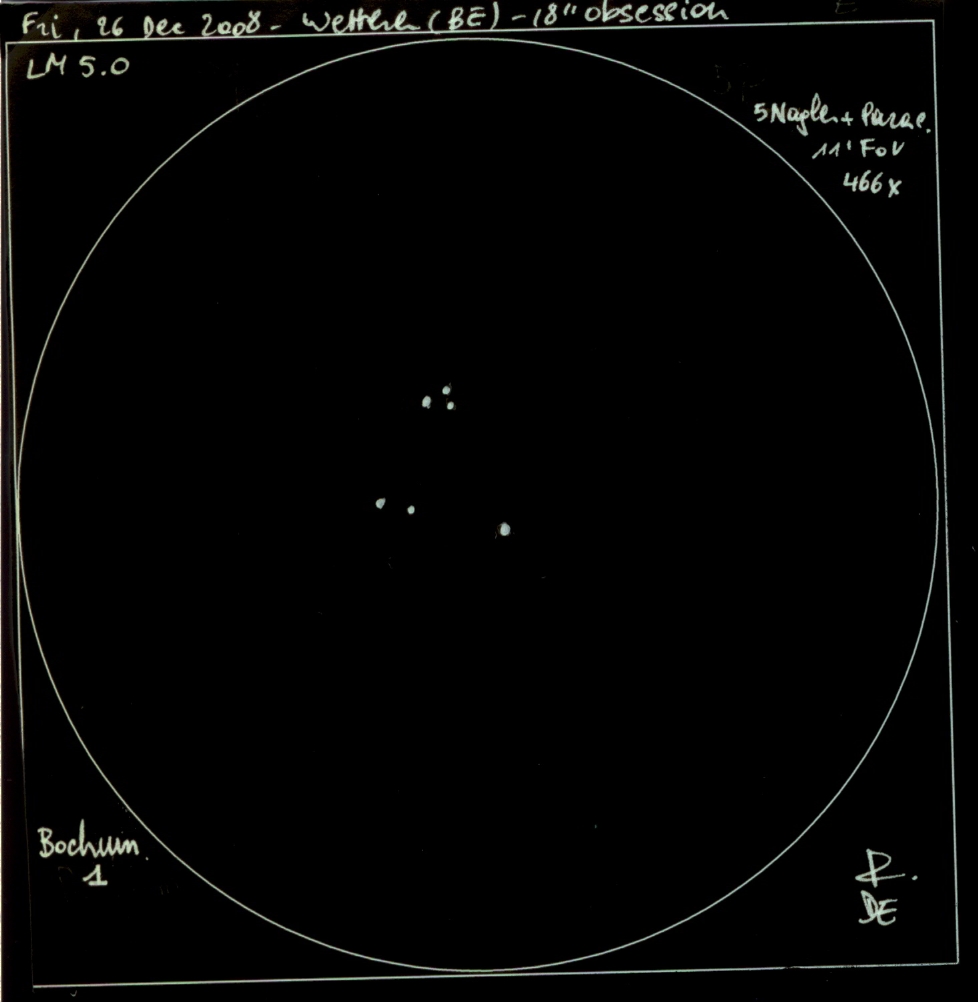 Fri, 26 Dec 2008 - Wetteren (BE) - 18" obsession
LM 5.0
5 Nagler + Parac.
11' FoV
466x
Bochum
1
R.
DE